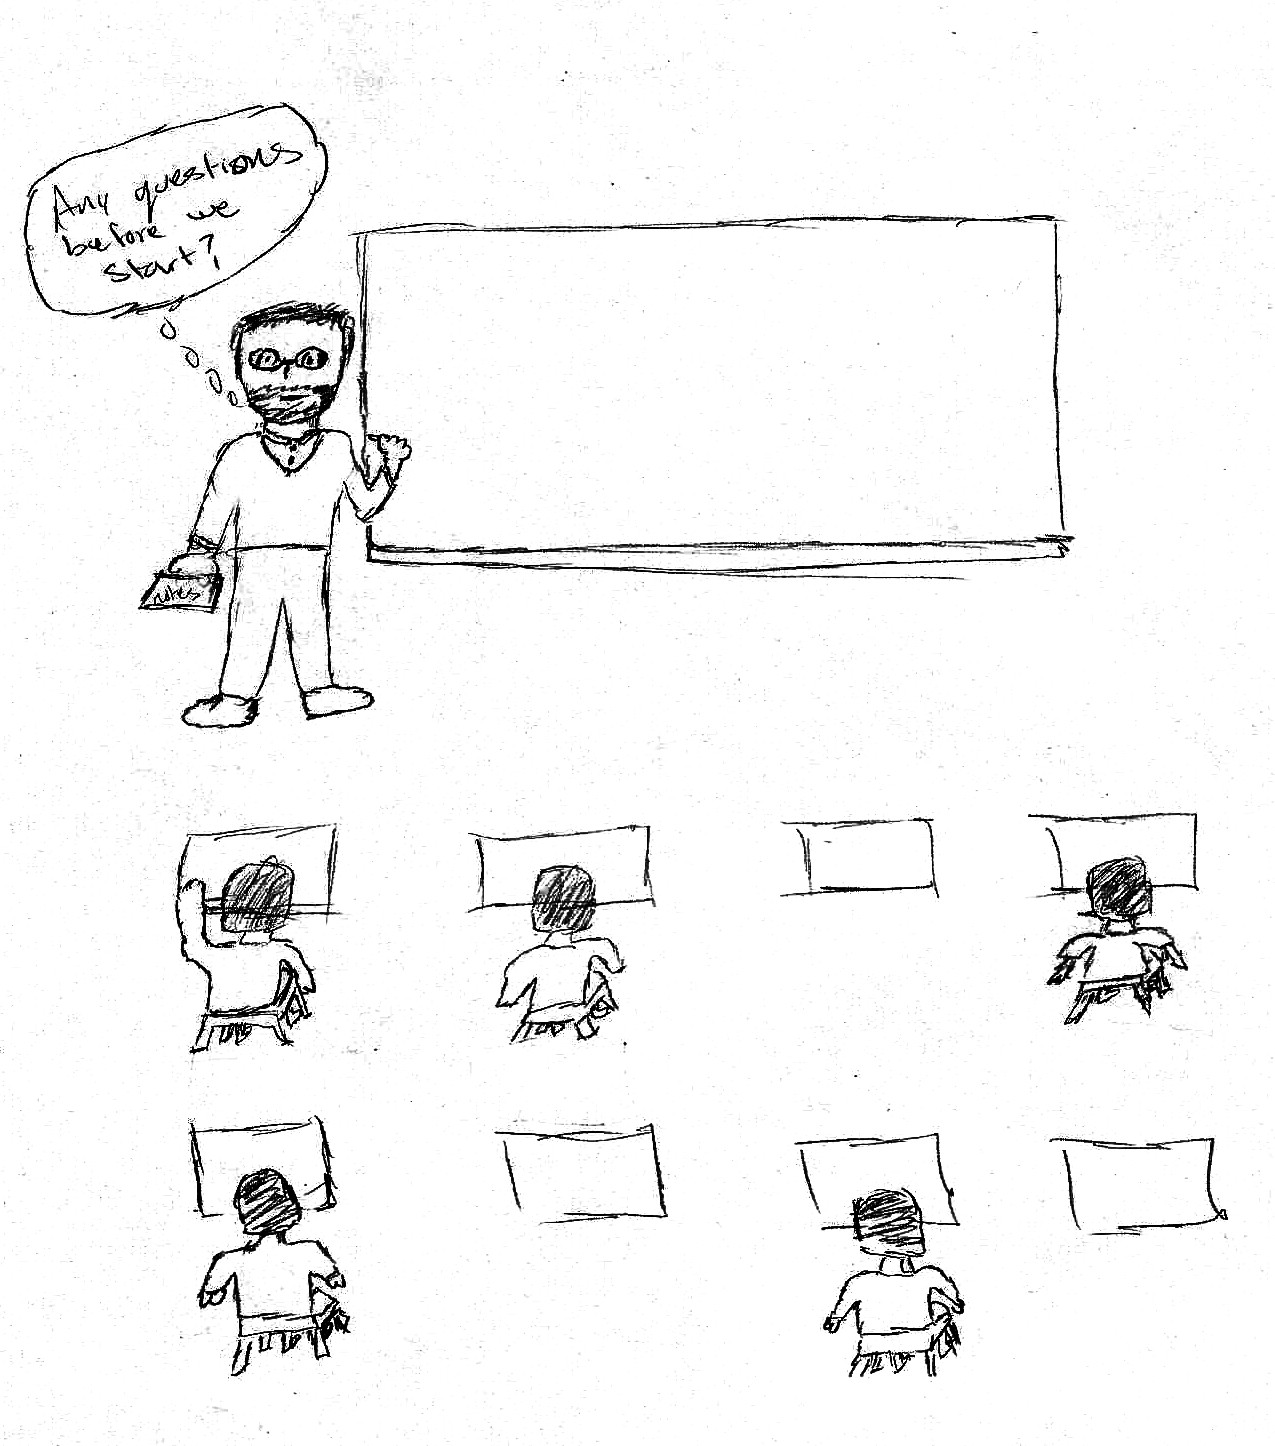 Any questions
before we
start?
notes